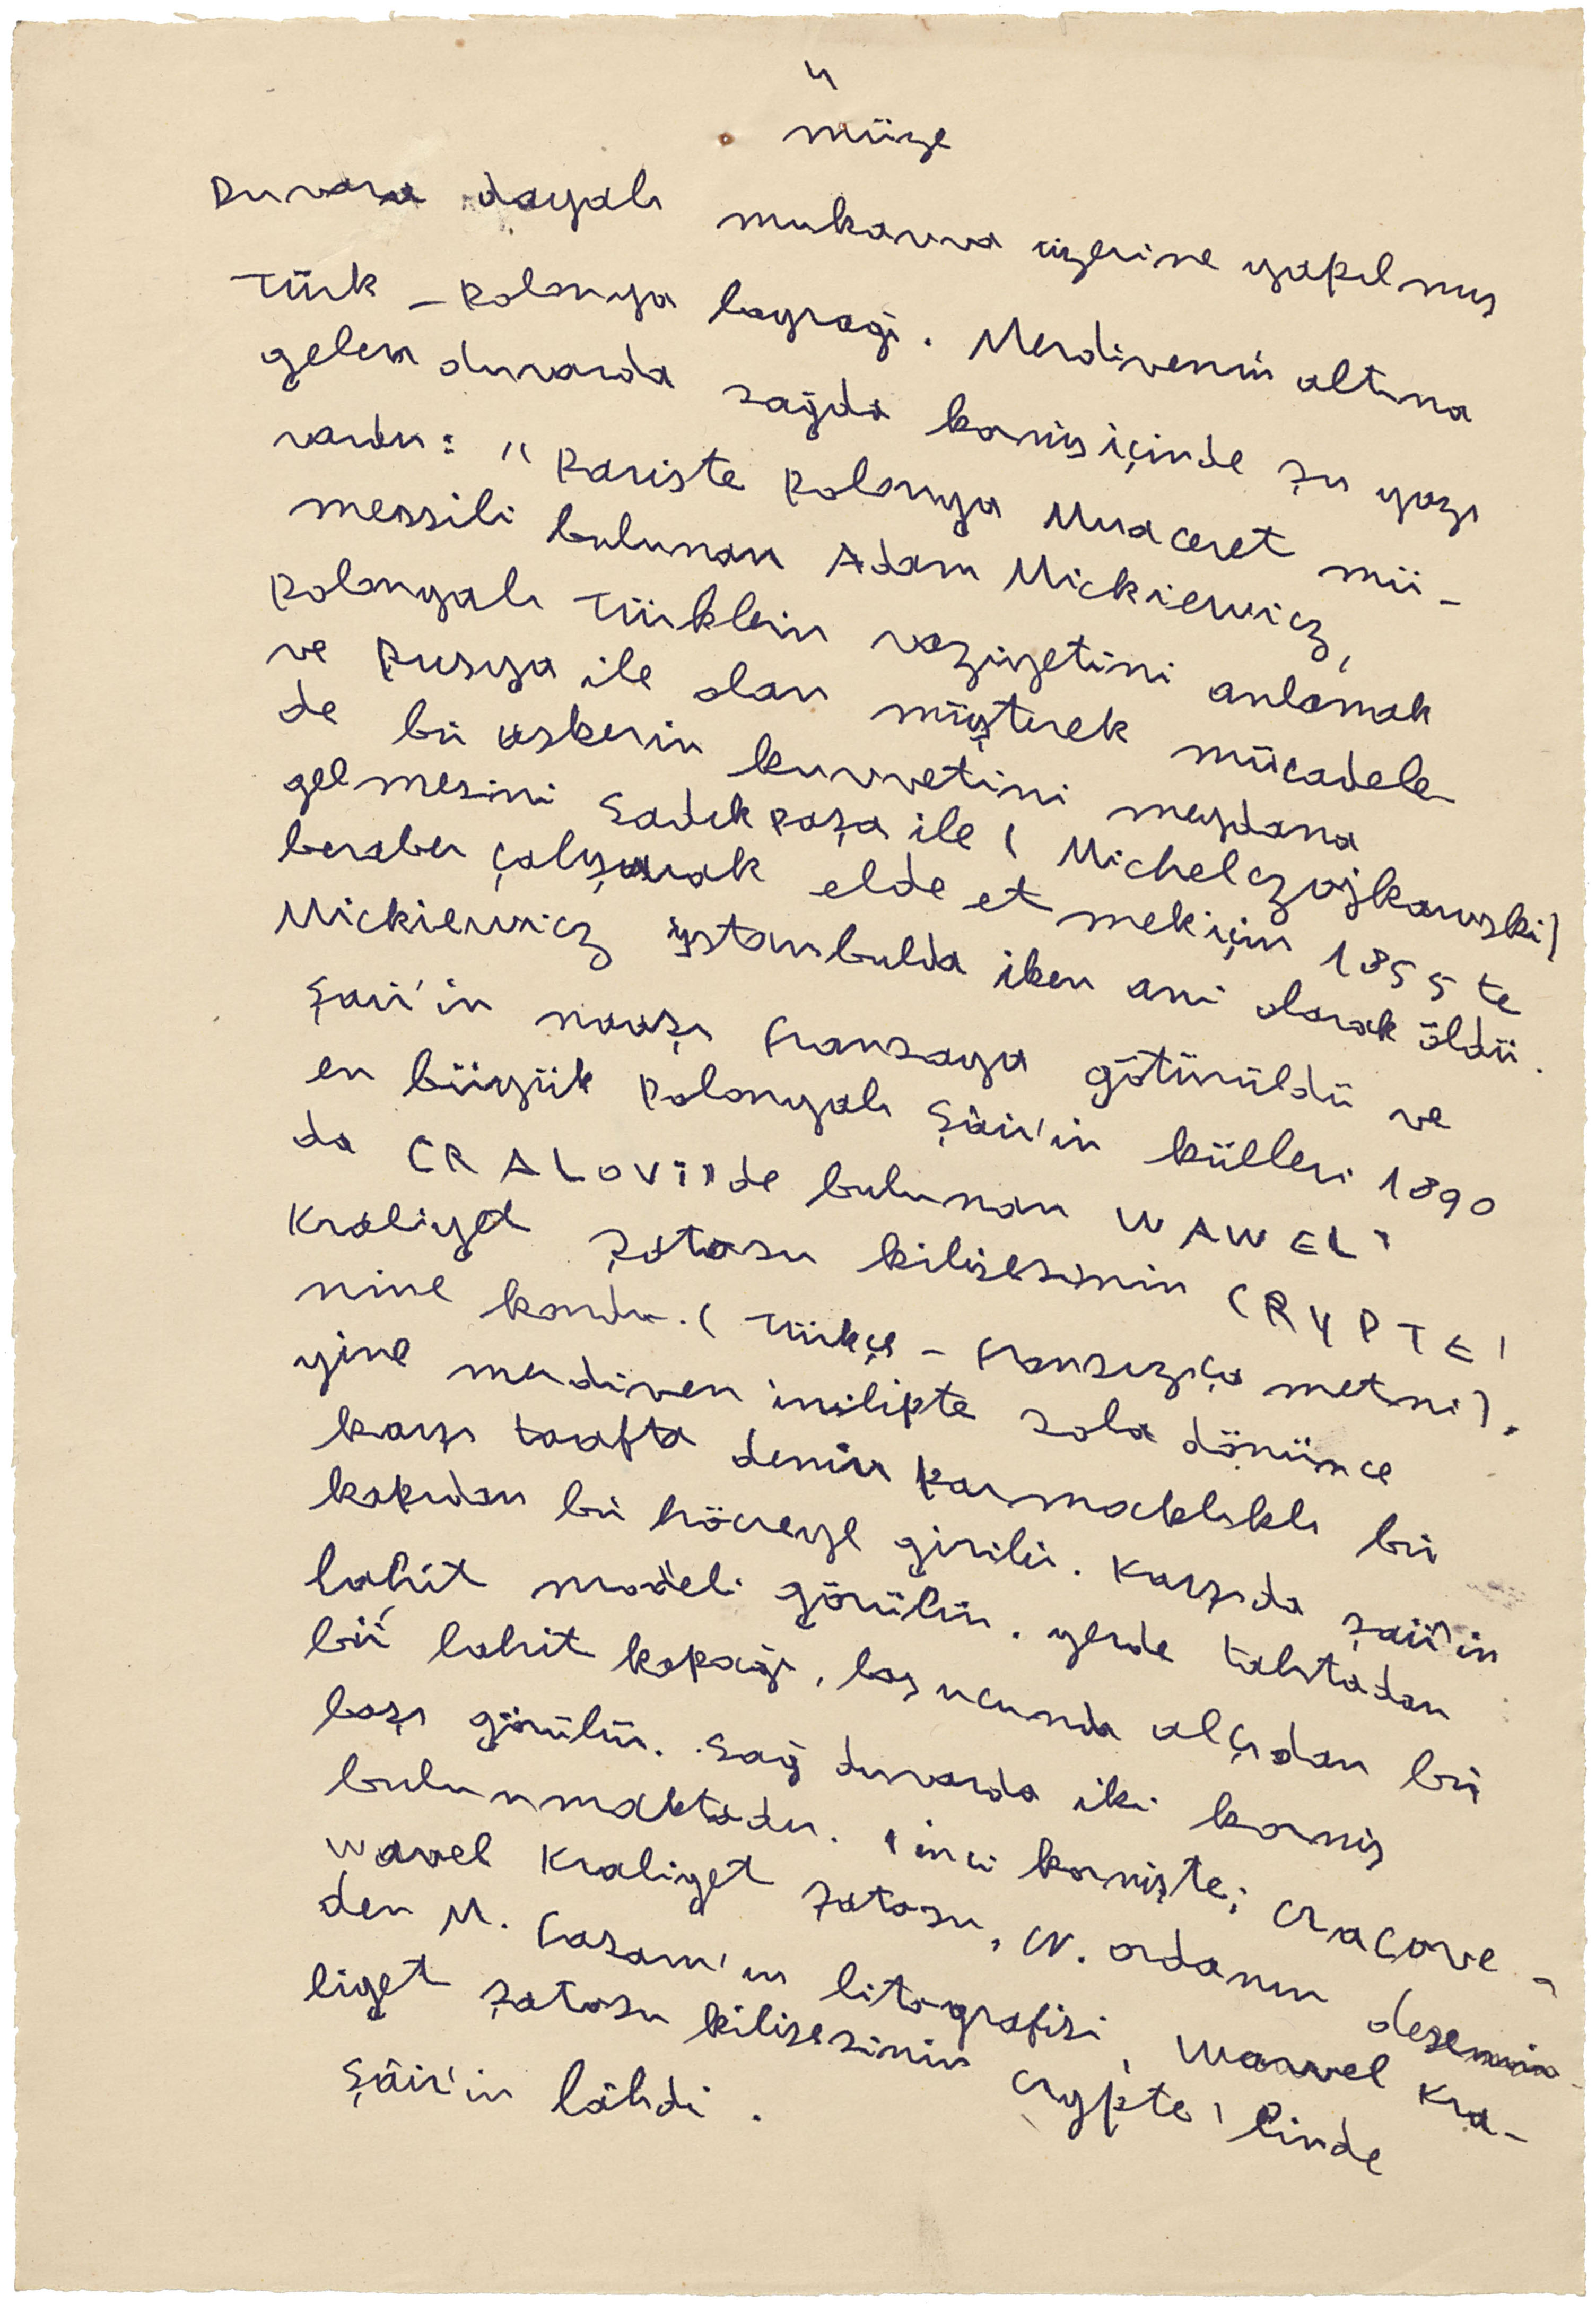 4
müze
Duvara dayalı mukavva üzerine yapılmış
Türk - Polonya bayrağı. Merdivenin altına
gelen duvarda sağda korniş içinde şu yazı
vardır: " Pariste Polonya Muaceret mü-
messili bulunan Adam Mickiewicz,
Polonyalı Türklerin vaziyetini anlamak
ve Rusya ile olan müşterek mücadele
de bir askerin kuvvetini meydana
gelmesini Sadık Paşa ile ( Michel czajkowski)
beraber çalışarak elde etmek için 1855 te
Mickiewicz istanbulda iken ani olarak öldü.
Şair'in naaşı Fransaya götürüldü ve
en büyük Polonyalı Şair'in külleri 1890
da CRALOVİ'de bulunan WAWEL'
Kraliyet şatosu kilisesinin CRYPTE'
nine kondu. ( Türkçe - Fransızca metni).
yine merdiven inilipte sola dönünce
karşı tarafta demir parmaklıklı bir
kapıdan bir hücreye girilir. Karşıda şair'in
lahit modeli görülür. yerde tahtadan
bir lahit kapağı, baş ucunda alçıdan bir
başı görülür. Sağ duvarda iki korniş
bulunmaktadır. 1 inci kornişte; Cracove -
Wavel Kraliyet şatosu, N. ordanın desenin-
den M. Fasam'ın litografisi, Wawel Kra-
liyet şatosu kilisesinin crypte'linde
Şâir'in lâhdi.